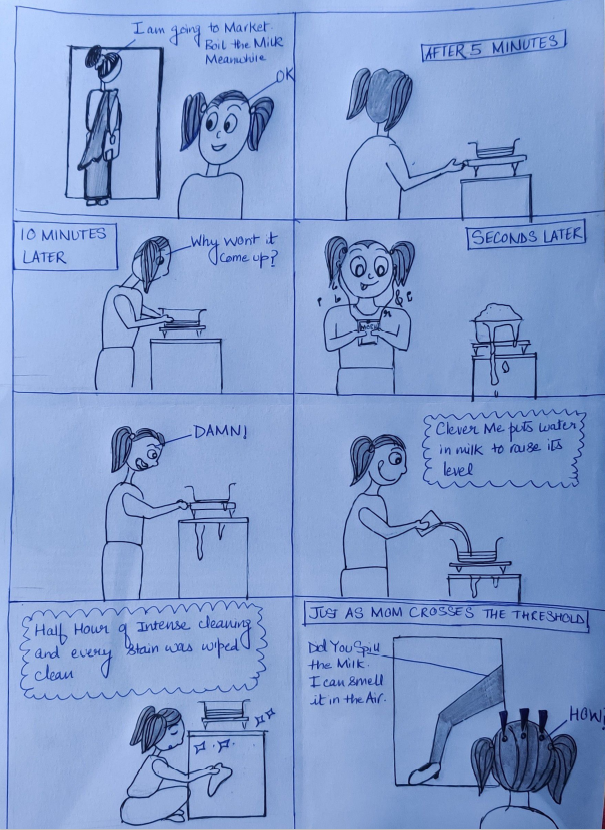 I am going to Market.
Boil the Milk
Meanwhile
OK
AFTER 5 MINUTES
10 MINUTES
LATER
Why wont it
come up?
SECONDS LATER
DAMN!
Clever Me puts water
in milk to raise its
level
Half Hour of Intense cleaning
and every stain was wiped
clean
JUST AS MOM CROSSES THE THRESHOLD
Did You Spill
the Milk.
I can smell
it in the Air.
HOW?